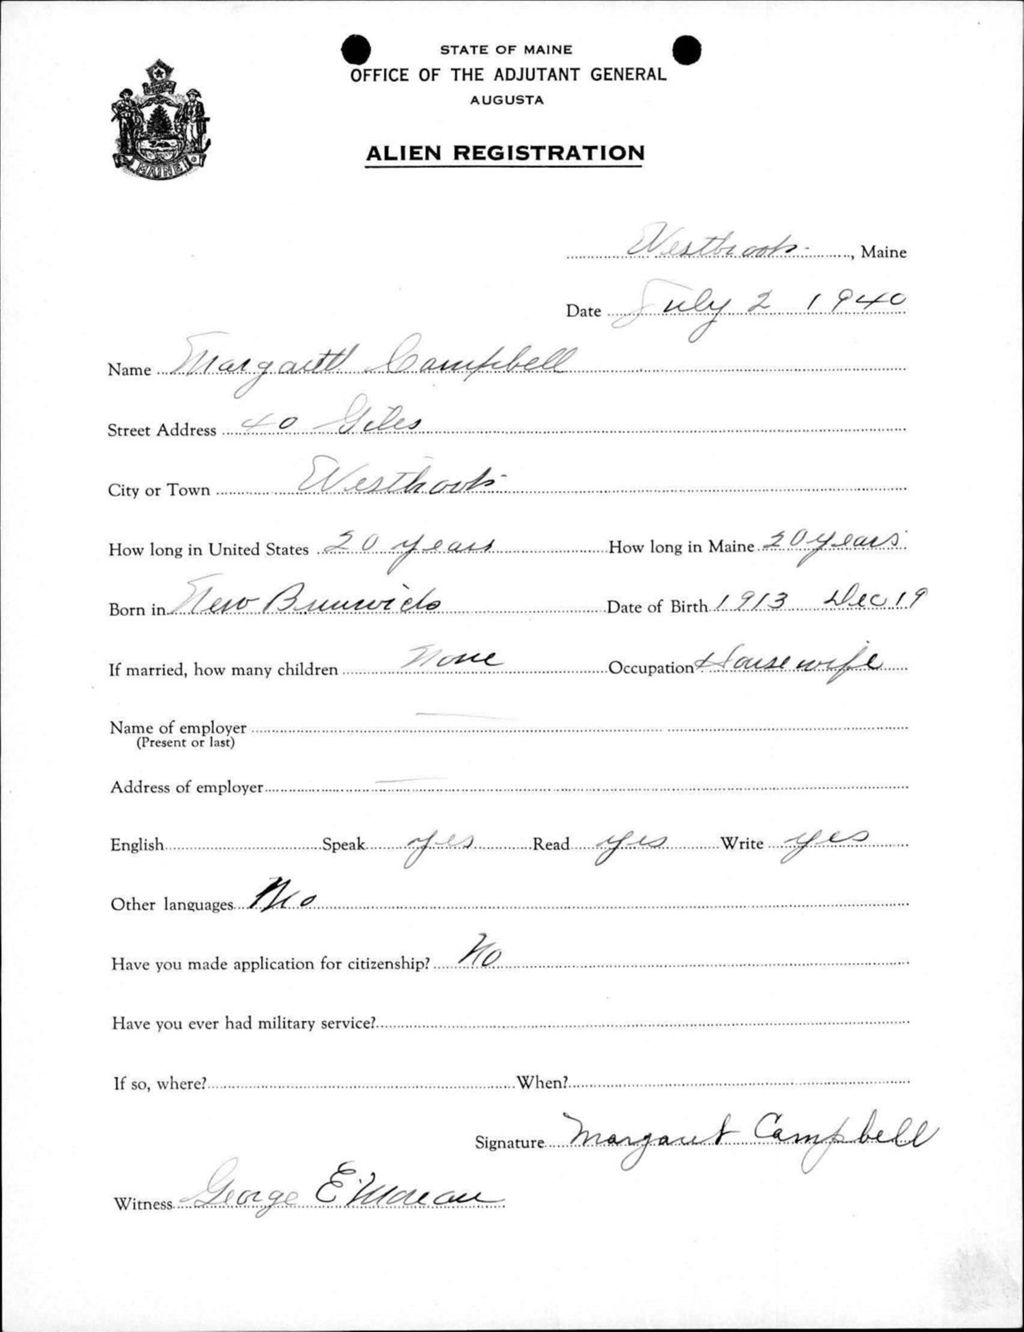 STATE OF MAINE
OFFICE OF THE ADJUTANT GENERAL
AUGUSTA
ALIEN REGISTRATION
MAINE
Westbrook, Maine
Date July 2 1940
Name Margarett Campbell
Street Address 40 Giles
City or Town Westbrook
How long in United States 20 years How long in Maine 20 years
Born in New Brunswick Date of Birth 1913 Dec 19
If married, how many children None Occupation Housewife
Name of employer —
(Present or last)
Address of employer —
English Speak yes Read yes Write yes
Other languages No
Have you made application for citizenship? No
Have you ever had military service?
If so, where? When?
Signature Margaret Campbell
Witness George E. Moreau